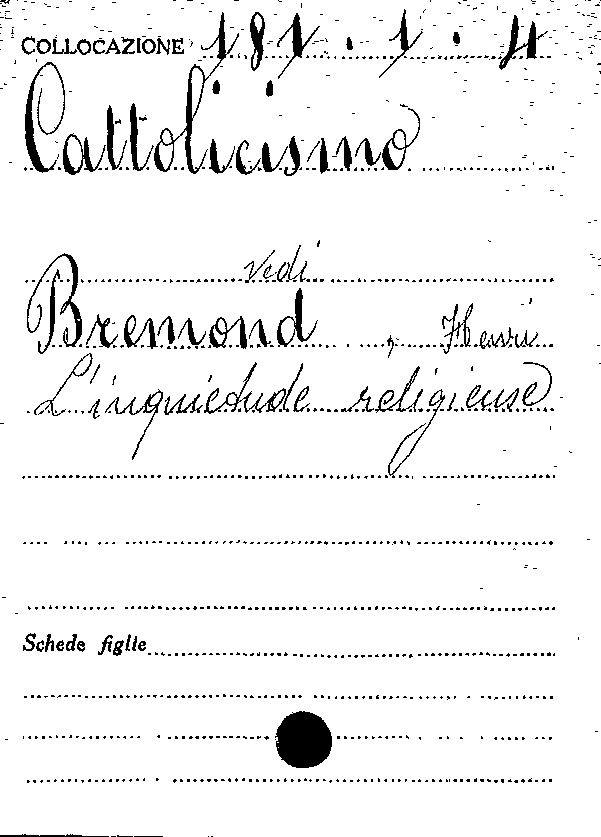 COLLOCAZIONE 181.1.4
Cattolicismo
vedi
Bremond, Henri
L'inquiétude religieuse
Schede figlie